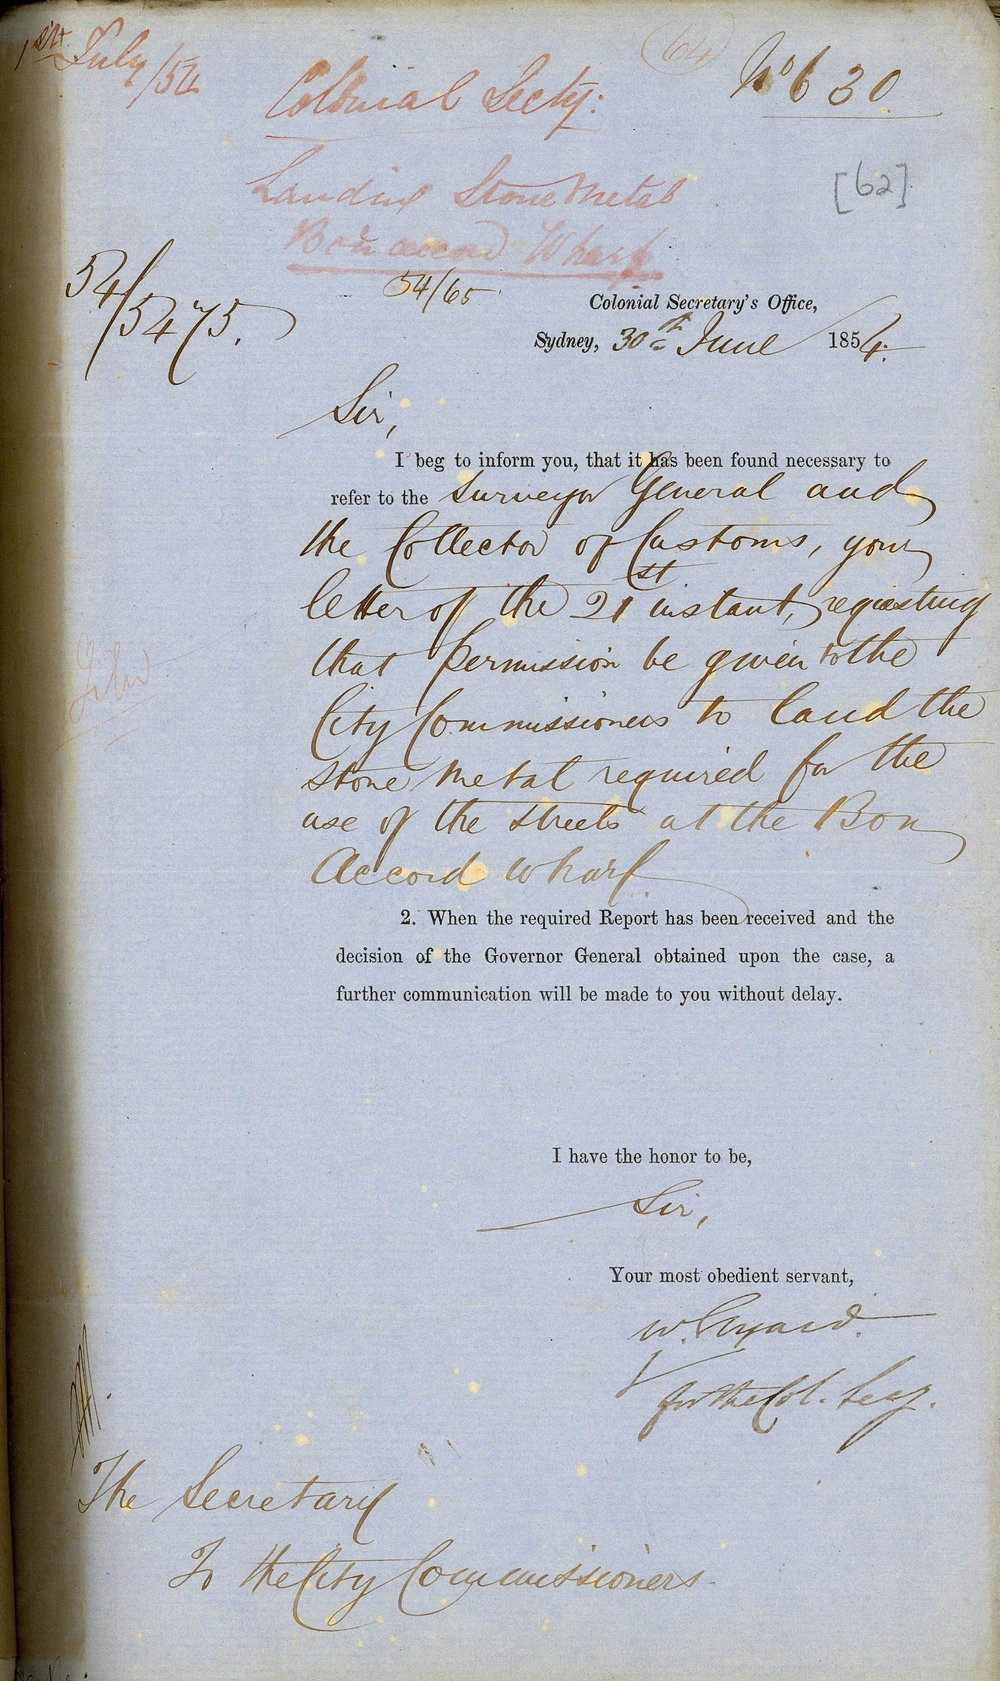 1st July/54
(64)
No 630
Colonial Secty:
[62]
Landing Stone Metal
Bon accord Wharf
54/5475.
54/65
Colonial Secretary's Office,
Sydney, 30th June 1854.
Sir,
I beg to inform you, that it has been found necessary to
refer to the Surveyor General and
the Collector of Customs, your
letter of the 21st instant, requesting
that permission be given to the
City Commissioners to land the
Stone Metal required for the
use of the streets at the Bon
Accord Wharf
2. When the required Report has been received and the
decision of the Governor General obtained upon the case, a
further communication will be made to you without delay.
I have the honor to be,
Sir,
Your most obedient servant,
W. Elyard.
for the Col. Secy.
The Secretary
To the City Commissioners